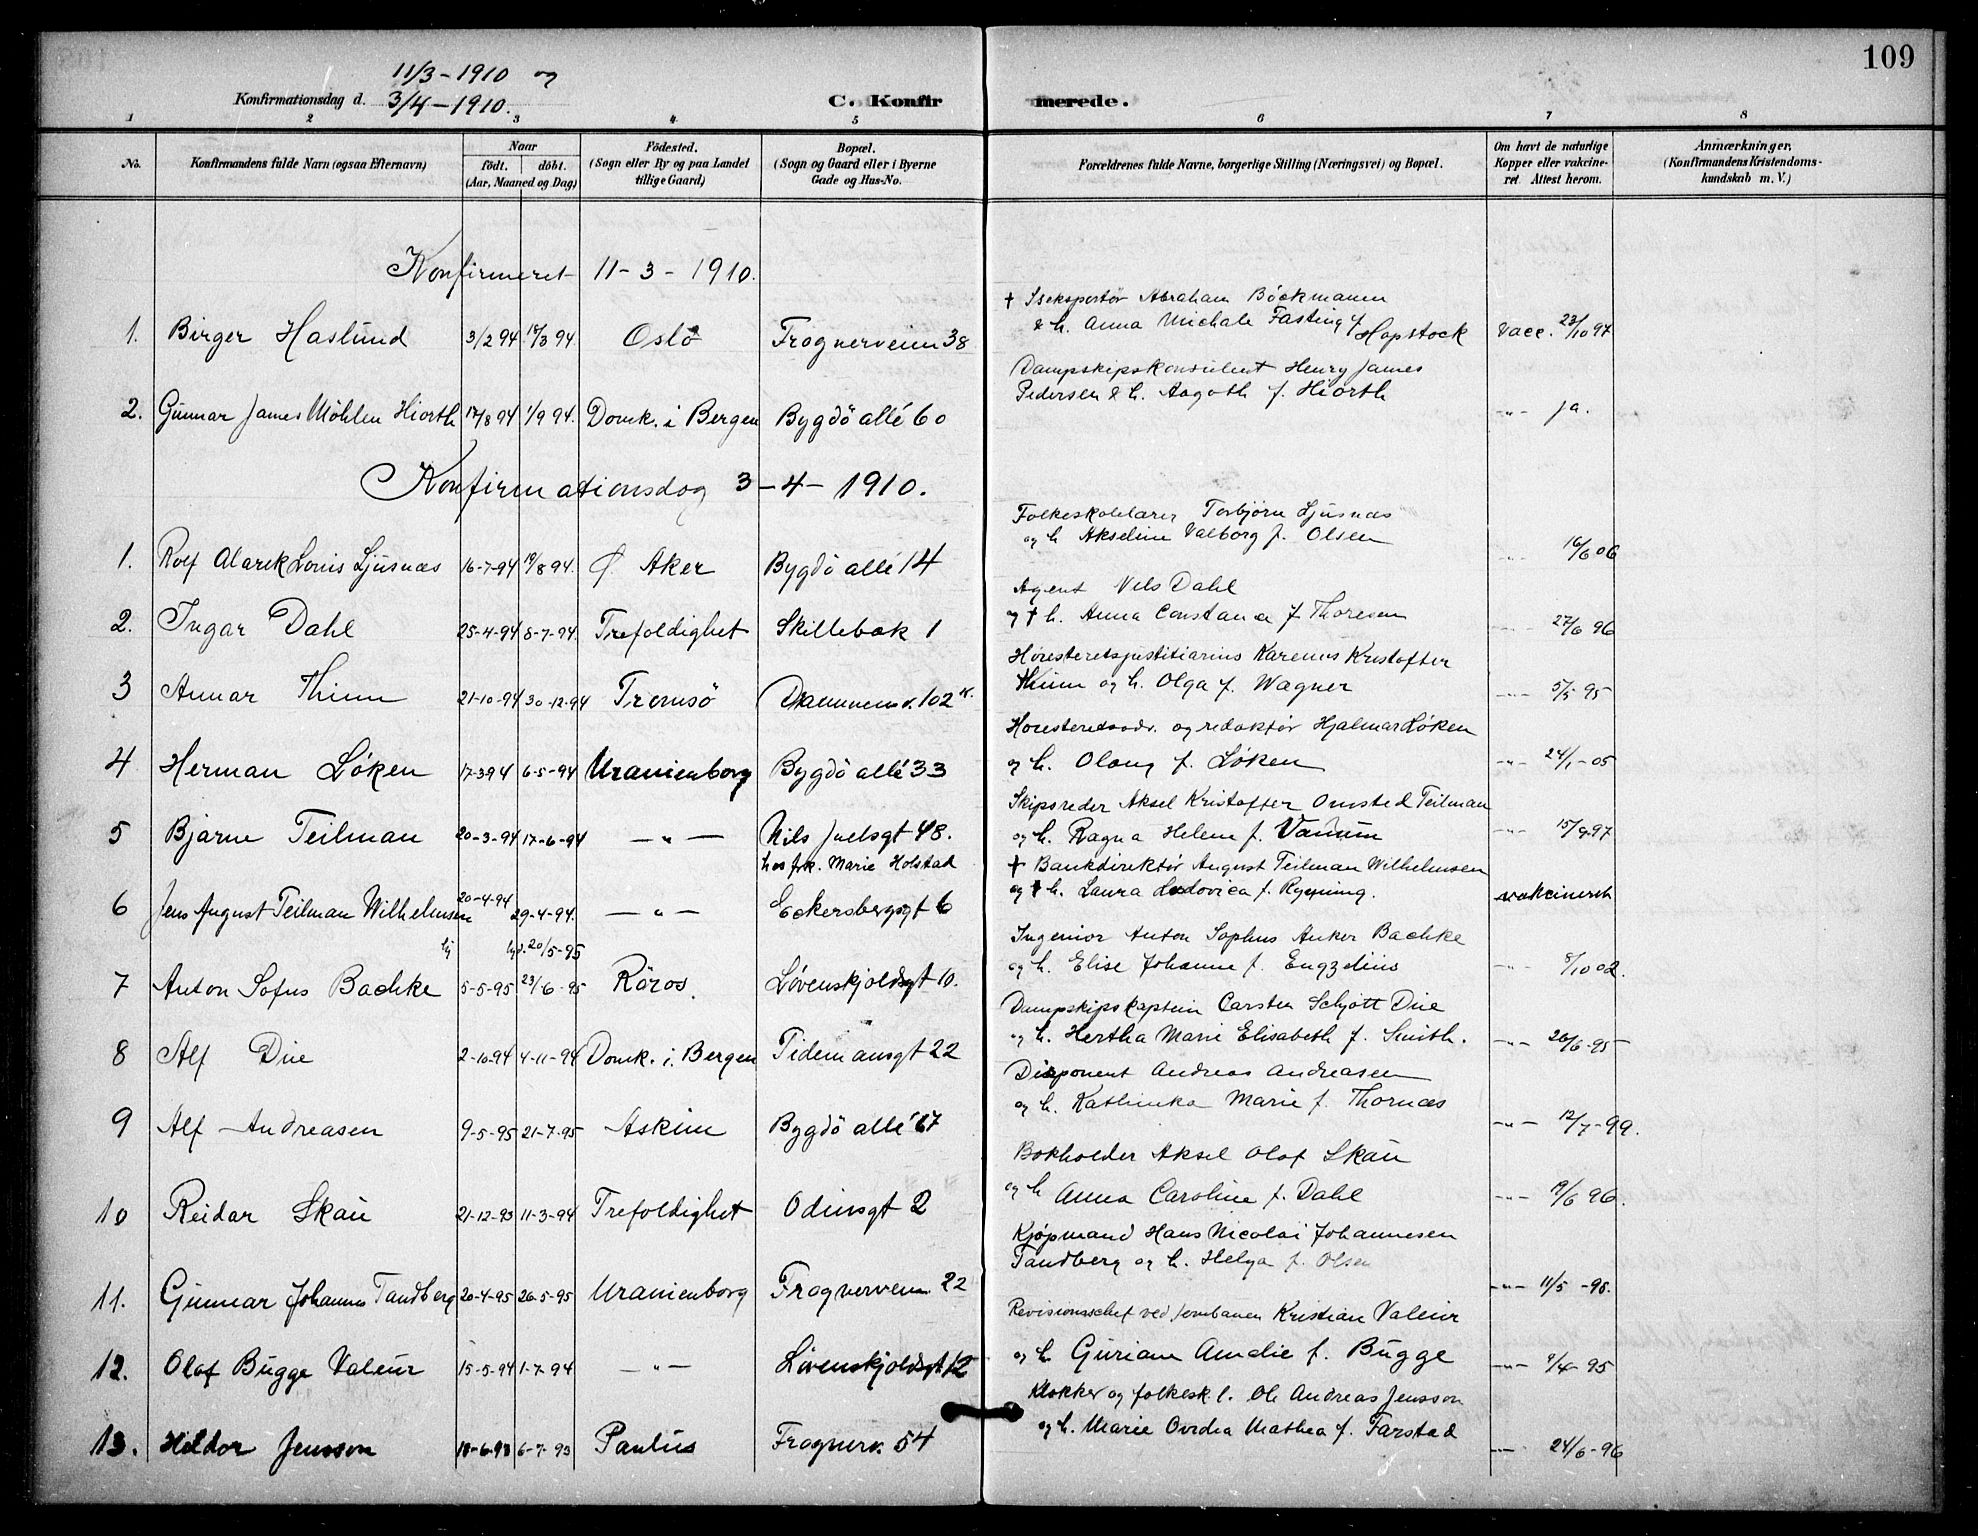 109
11/3-1910 og
Konfirmationsdag d. 3/4-1910.
C. Konfirmerede.
1 2 3 4 5 6 7 8
No. Konfirmandens fulde Navn (ogsaa Efternavn)
Naar
födt. döbt.
(Aar, Maaned og Dag)
Födested.
(Sogn eller By og paa Landet
tillige Gaard)
Bopæl.
(Sogn og Gaard eller i Byerne
Gade og Hus-No.
Forældrenes fulde Navne, borgerlige Stilling (Næringsvei) og Bopæl.
Om havt de naturlige
Kopper eller vakcine-
ret Attest herom.
Anmærkninger,
(Konfirmandens Kristendoms-
kundskab m. V.)
Konfirmeret 11-3-1910.
† Iseksportör Abraham Böckmann
& h. Anna Michale Fasting f. Hopstock
1. Birger Haslund 3/2 94 18/3 94 Oslo Frognerveien 38 Vacc. 23/10 97
Dampskipskonsulent Henry James
Pedersen & h. Aagoth f. Hiorth
2. Gunnar James Möhlen Hiorth 17/8 94 1/9 94. Domk. i Bergen Bygdö allé 60 -"- ja.
Konfirmationsdag 3-4-1910.
Folkeskolelærer Torbjörn Ljusnæs
og h. Akseline Valborg f. Olsen
1. Rolf Alarik Louis Ljusnæs 16-7-94 19/8 94. Ø. Aker Bygdö allé 14 -"- 16/6 06
Agent Nils Dahl
og † h. Anna Constance f. Thoresen
2. Ingar Dahl 25-4-94 8-7-94. Trefoldighet Skillebæk 1 -"- 27/6 96
Höiesteretsjustitiarius Karenus Kristoffer
Thinn og h. Olga f. Wagner
3 Annar Thinn 21-10-94 30-12-94 Tromsö Drammensv. 102 -"- 5/5 95
Höiesteretsadv. og redaktör Hjalmar Löken
og h. Olaug f. Löken
4 Herman Löken 17-3 94 6-5-94 Uranienborg Bygdö allé 33 -"- 24/1-05
Skipsreder Aksel Kristoffer Omsted Teilman
og h. Ragna Helene f.
5 Bjarne Teilman 20-3-94 17-6-94 -"- Nils Juelsgt 48. -"- 15/9 97
hos frk. Marie Holstad
† Bankdirektör August Teilman Wilhelmsen
og † h. Laura Ludovica f. Rynning.
6 Jens August Teilman Wilhelmsen 20-4-94 29-4-94. -"- Eckersbergsgt 6 vakcineret
hj. 20/5-95
Ingeniör Anton Sophus Anker Bachke
og h. Elise Johanne f. Engzelius
7 Anton Sofus Bachke 5-5-95 23/6-95 Röros. Lövenskjoldsgt 10. -"- 8/10 02
Dampskipskaptein Carsten Schjött Due
og h. Hertha Marie Elisabeth f. Smith.
8 Alf Due 2-10-94 4-11-94 Domk. i Bergen Tidemansgt 22 -"- 26/6-95
Disponent Andreas Andreasen
og h. Kathinka Marie f. Thornæs
9 Alf Andreasen 9-5-95 21-7-95 Askim Bygdö allé 67 -"- 12/7-99.
Bokholder Aksel Olaf Skau
og h. Anna Caroline f. Dahl
10 Reidar Skau 21-12-93 11-3-94 Trefoldighet Odinsgt 2 -"- 19/6 96.
Kjöpmand Hans Nicolai Johannesen
Tandberg og h. Helga f. Olsen
11. Gunnar Johannes Tandberg 20-4-95 26-5-95 Uranienborg Frognerveien 22 -"- 11/5-98.
Revisionschef ved Jernbanen Kristian Valeur
og h. Guriane Amelie f. Bugge
12. Olaf Bugge Valeur 15-5-94 1-7-94 -"- Lövenskjoldsgt 12 -"- 9/4-95
Klokker og folkesk.l. Ole Andreas Jensson
og h. Marie Ovidia Mathea f. Farstad
13. Hildor Jensson 18-6-93 6-7-93 Paulus Frognerv. 54 -"- 24/6-96